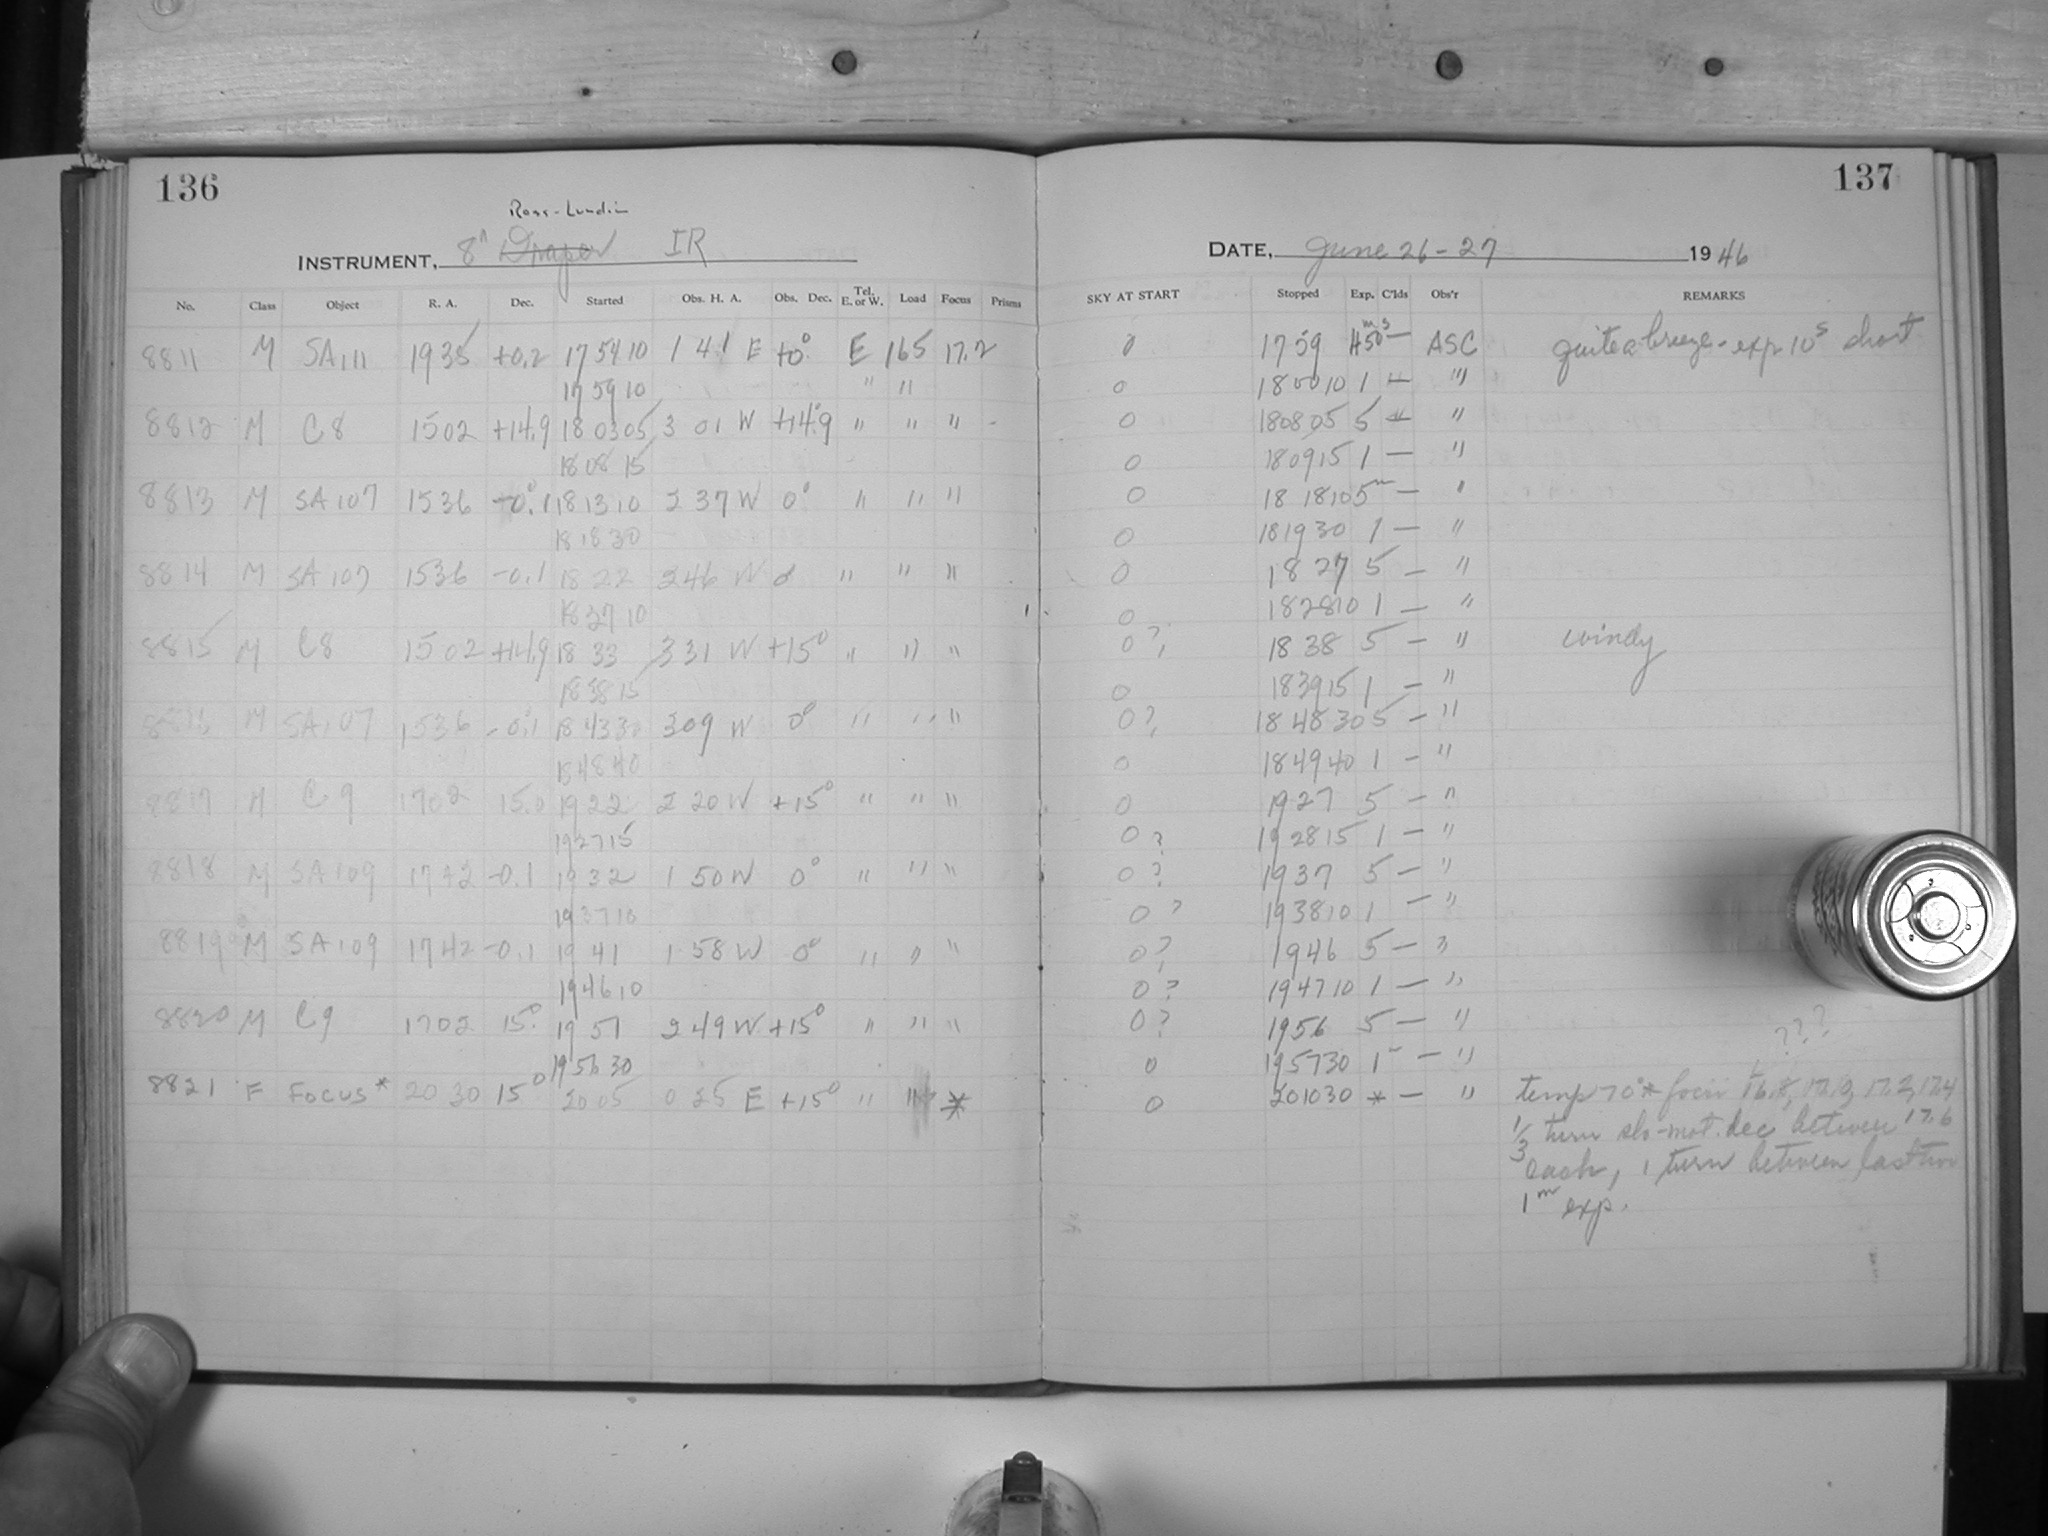 136
137
Ross-Lundin
INSTRUMENT, 8" Draper IR
DATE, June 26-27 1946
No. Class Object R. A. Dec. Started Obs. H. A. Obs. Dec. Tel. E. or W. Load Focus Prisms SKY AT START Stopped Exp. C'lds Obs'r REMARKS
8811 M SA111 1935 +0.2 175410 1 41 E +0° E 165 17.2 0 1759 4m50s — ASC quite a breeze - exp 10s short
175910 " " 0 180010 1 — "
8812 M C8 1502 +14.9 180305 3 01 W +14.9 " " " - 0 180805 5 — "
180815 0 180915 1 — "
8813 M SA107 1536 -0.1 181310 2 37 W 0° " " " 0 181810 5m — "
181830 0 181930 1 — "
8814 M SA107 1536 -0.1 1822 2 46 W 0 " " " 0 1827 5 — "
182710 0 182810 1 — "
8815 M C8 1502 +14.9 1833 3 31 W +15° " " " 0? 1838 5 — " windy
183815 0 183915 1 — "
8816 M SA107 1536 -0.1 184330 3 09 W 0° " " " 0? 184830 5 — "
184840 0 184940 1 — "
8817 M C9 1702 15.0 1922 2 20 W +15° " " " 0 1927 5 — "
192715 0? 192815 1 — "
8818 M SA109 1742 -0.1 1932 1 50 W 0° " " " 0? 1937 5 — "
193710 0? 193810 1 — "
8819 M SA109 1742 -0.1 1941 1 58 W 0° " " " 0? 1946 5 — "
194610 0? 194710 1 — "
8820 M C9 1702 15° 1951 2 49 W +15° " " " 0? 1956 5 — "
195630 0 195730 1 — "
???
8821 F Focus* 2030 15° 2005 0 25 E +15° " " * 0 201030 * — " temp 70° * foci 17.2, 17.4
17.6
1/3 turn slo-mot. dec between
each, 1 turn between last two
1m exp.